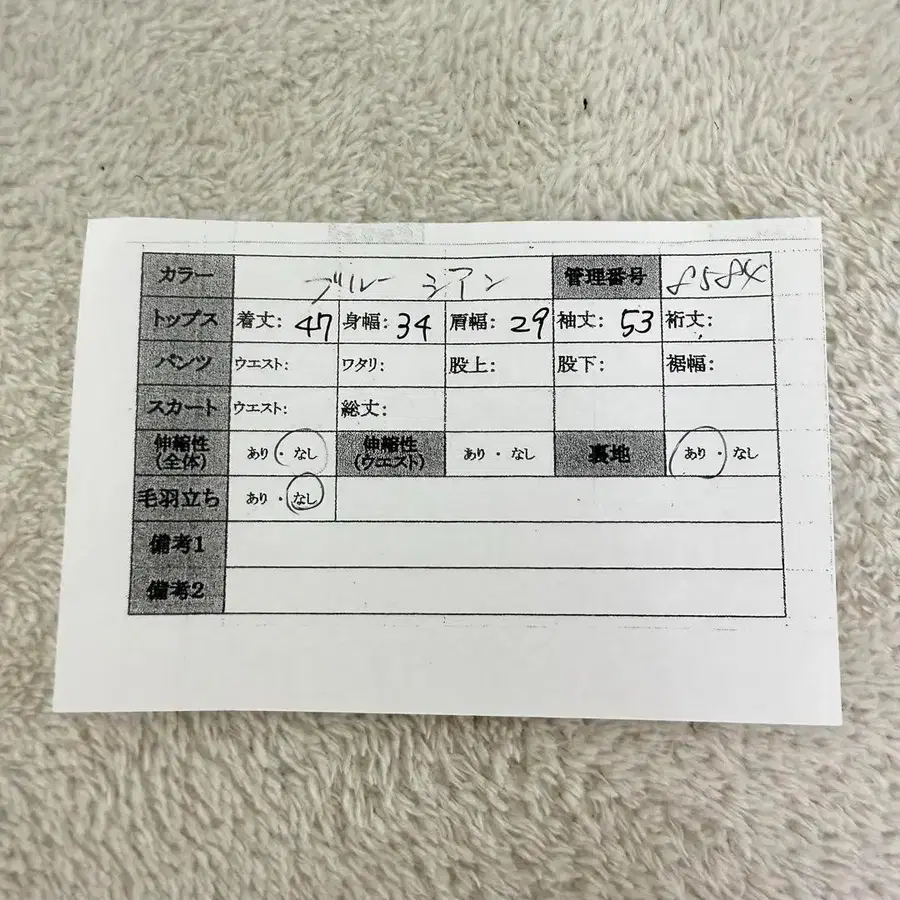 カラー ブルー シアン 管理番号 8584
トップス 着丈: 47 身幅: 34 肩幅: 29 袖丈: 53 裄丈:
パンツ ウエスト: ワタリ: 股上: 股下: 裾幅:
スカート ウエスト: 総丈:
伸縮性(全体) あり・なし 伸縮性(ウエスト) あり・なし 裏地 あり・なし
毛羽立ち あり・なし
備考1
備考2